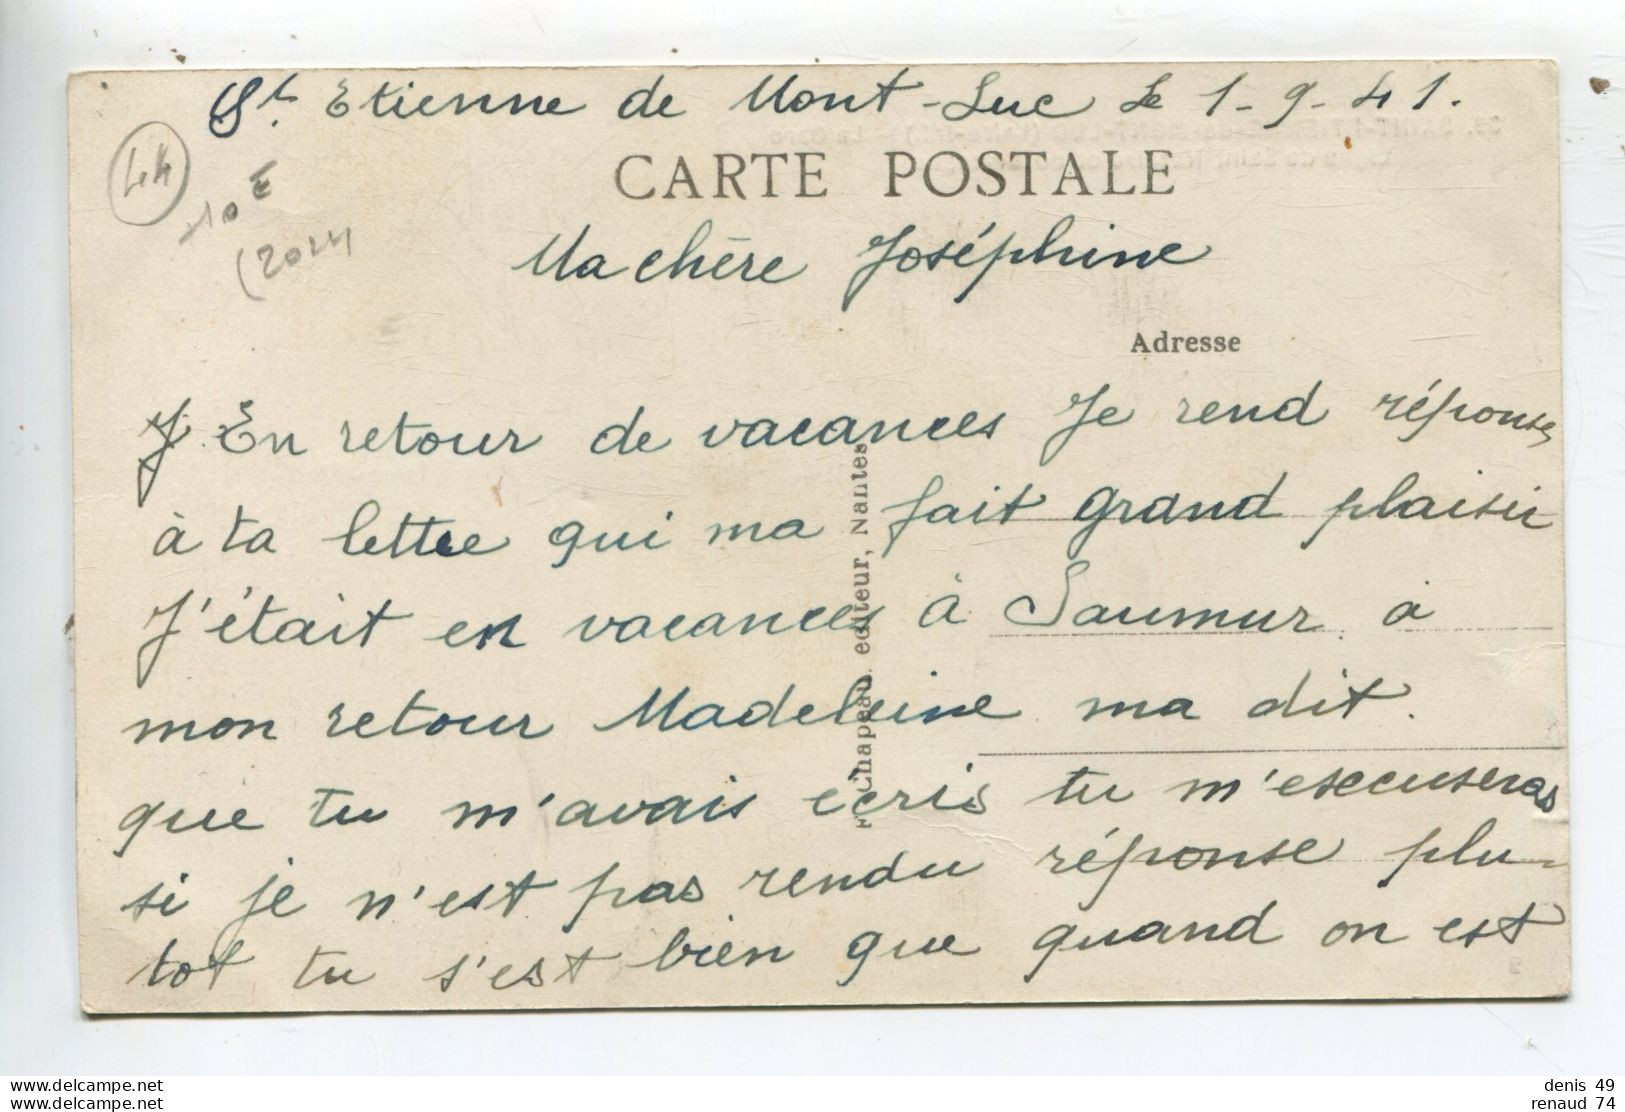 St Etienne de Mont-Luc Le 1-9-41.
CARTE POSTALE
44
10 E
Ma chère Joséphine
Adresse
J En retour de vacances Je rend réponse
à ta lettre qui ma fait grand plaisir
J'était en vacances à Saumur à
mon retour Madeleine ma dit.
que tu m'avais ecris tu m'exccuseras
si je n'est pas rendu réponse plu-
tot tu s'est bien que quand on est
Chapeau editeur, Nantes
www.delcampe.net
www.delcampe.net
denis 49
renaud 74